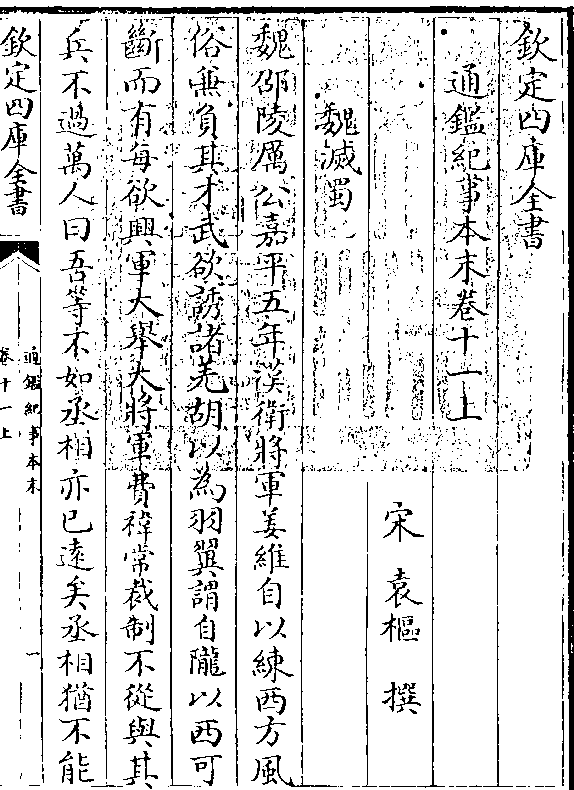 欽定四庫全書
通鑑紀事本末卷十一上
宋 袁樞 撰
魏滅蜀
魏邵陵厲公嘉平五年漢衛將軍姜維自以練西方風
俗兼負其才武欲誘諸羌胡以為羽翼謂自隴以西可
斷而有每欲興軍大舉大將軍費禕常裁制不從與其
兵不過萬人曰吾等不如丞相亦已遠矣丞相猶不能
欽定四庫全書
通鑑紀事本末
卷十一上
一